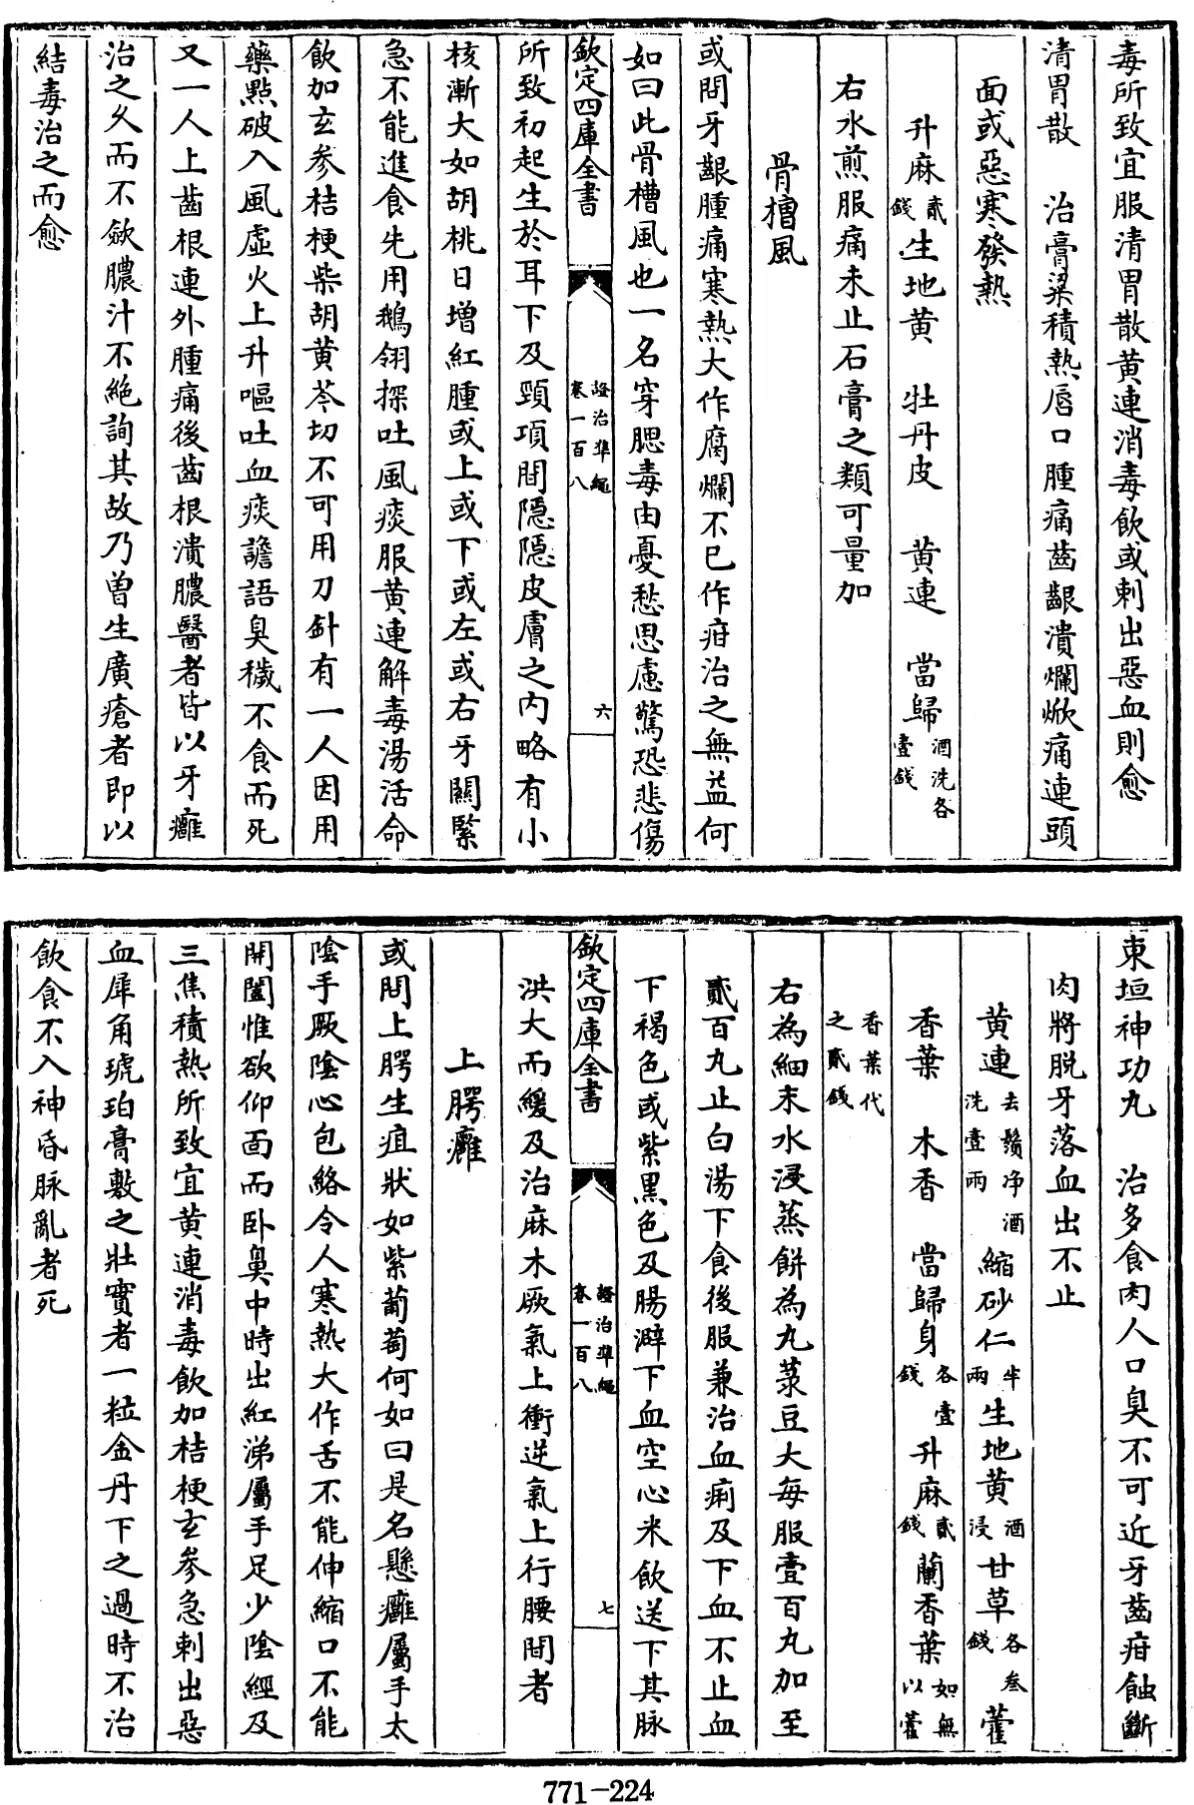 毒所致宜服清胃散黄連消毒飲或刺出惡血則愈
清胃散　治膏粱積熱唇口腫痛齒齦潰爛焮痛連頭
面或惡寒發熱
升麻貳錢生地黄　牡丹皮　黄連　當歸酒洗各壹錢
右水煎服痛未止石膏之類可量加
骨槽風
或問牙齦腫痛寒熱大作腐爛不已作疳治之無益何
如曰此骨槽風也一名穿腮毒由憂愁思慮驚恐悲傷
欽定四庫全書　證治準繩卷一百八　六
所致初起生於耳下及頸項間隱隱皮膚之内略有小
核漸大如胡桃日增紅腫或上或下或左或右牙關緊
急不能進食先用鵝翎探吐風痰服黄連解毒湯活命
飲加玄參桔梗柴胡黄芩切不可用刀針有一人因用
藥點破入風虛火上升嘔吐血痰譫語臭穢不食而死
又一人上齒根連外腫痛後齒根潰膿醫者皆以牙癰
治之久而不斂膿汁不絶詢其故乃曾生廣瘡者即以
結毒治之而愈
東垣神功丸　治多食肉人口臭不可近牙齒疳蝕斷
肉將脱牙落血出不止
黄連去鬚净酒洗壹兩　縮砂仁半兩生地黄酒浸甘草各叁錢藿
香葉　木香　當歸身各壹錢升麻貳錢蘭香葉如無以藿
香葉代之貳錢
右為細末水浸蒸餅為丸菉豆大每服壹百丸加至
貳百丸止白湯下食後服兼治血痢及下血不止血
下褐色或紫黑色及腸澼下血空心米飲送下其脉
欽定四庫全書　證治準繩卷一百八　七
洪大而緩及治麻木厥氣上衝逆氣上行腰間者
上腭癰
或問上腭生疽狀如紫葡萄何如曰是名懸癰屬手太
陰手厥陰心包絡令人寒熱大作舌不能伸縮口不能
開闔惟欲仰面而卧鼻中時出紅涕屬手足少陰經及
三焦積熱所致宜黄連消毒飲加桔梗玄參急刺出惡
血犀角琥珀膏敷之壯實者一粒金丹下之過時不治
飲食不入神昏脉亂者死
771-224